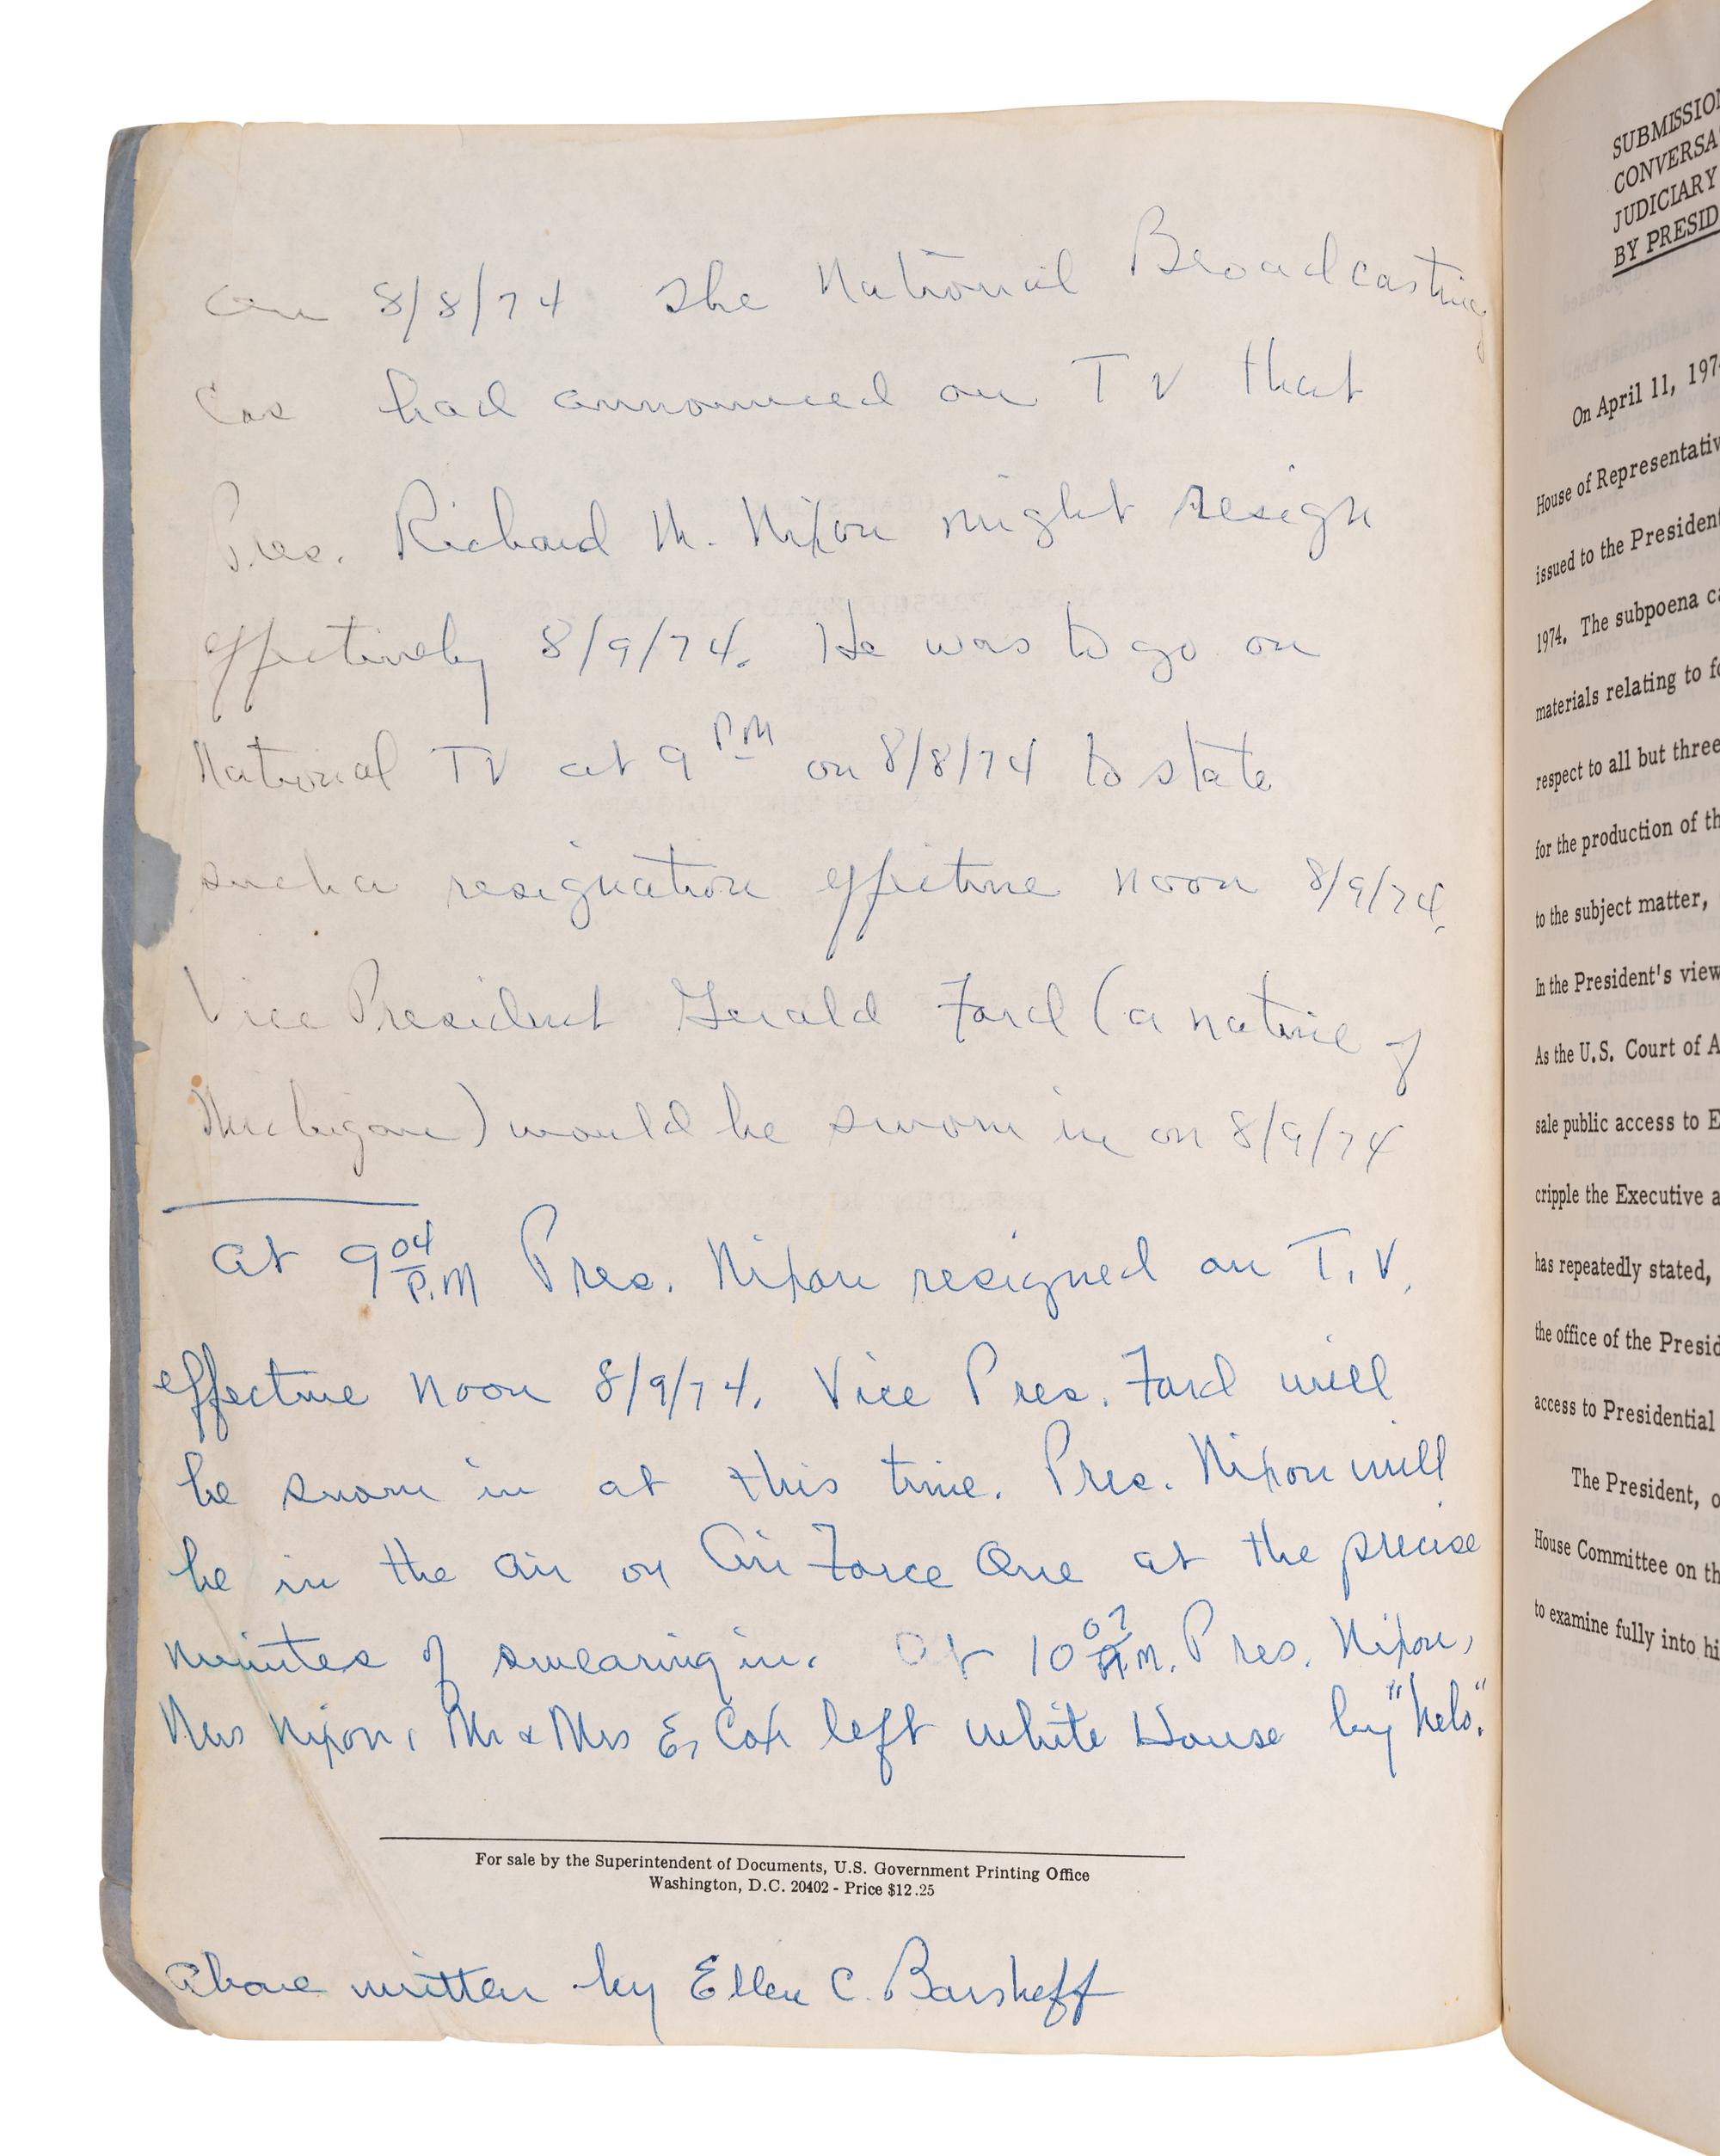 On 8/8/74 The National Broadcasting
Cos had announced on TV that
Pres. Richard M. Nixon might resign
effectively 8/9/74. He was to go on
National TV at 9 PM on 8/8/74 to state
such a resignation effective noon 8/9/74.
Vice President Gerald Ford (a native of
Michigan) would be sworn in on 8/9/74
At 9 04 P.M Pres. Nixon resigned on T.V.
effective noon 8/9/74. Vice Pres. Ford will
be sworn in at this time. Pres. Nixon will
be in the air on Air Force One at the precise
minutes of swearing in. At 10 07 A.M. Pres. Nixon,
Mrs Nixon, Mr & Mrs E, Cox left White House by "helo".
For sale by the Superintendent of Documents, U.S. Government Printing Office
Washington, D.C. 20402 - Price $12.25
Above written by Ellen C. Barsheff
SUBMISSION
CONVERSA
JUDICIARY
BY PRESID
On April 11, 197
House of Representativ
issued to the President
1974. The subpoena ca
materials relating to fo
respect to all but three
for the production of th
to the subject matter,
In the President's view
As the U.S. Court of A
sale public access to E
cripple the Executive a
has repeatedly stated,
the office of the Presid
access to Presidential
The President, o
House Committee on th
to examine fully into hi